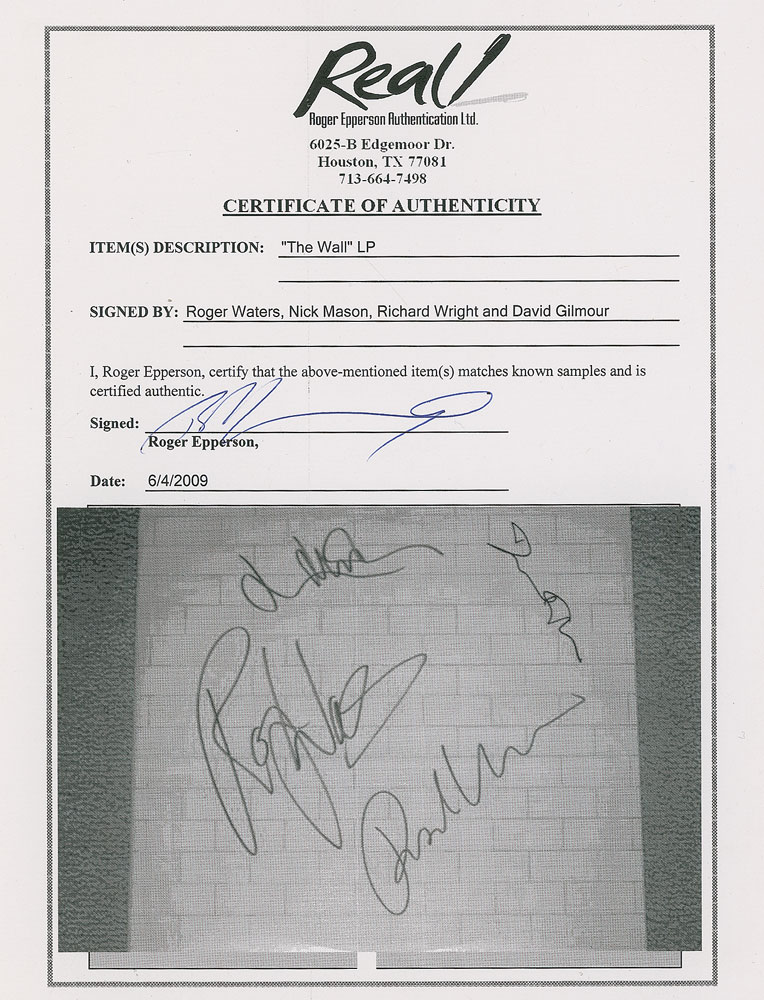 Real!
Roger Epperson Authentication Ltd.
6025-B Edgemoor Dr.
Houston, TX 77081
713-664-7498
CERTIFICATE OF AUTHENTICITY
ITEM(S) DESCRIPTION: "The Wall" LP
SIGNED BY: Roger Waters, Nick Mason, Richard Wright and David Gilmour
I, Roger Epperson, certify that the above-mentioned item(s) matches known samples and is
certified authentic.
Signed:
Roger Epperson,
Date: 6/4/2009